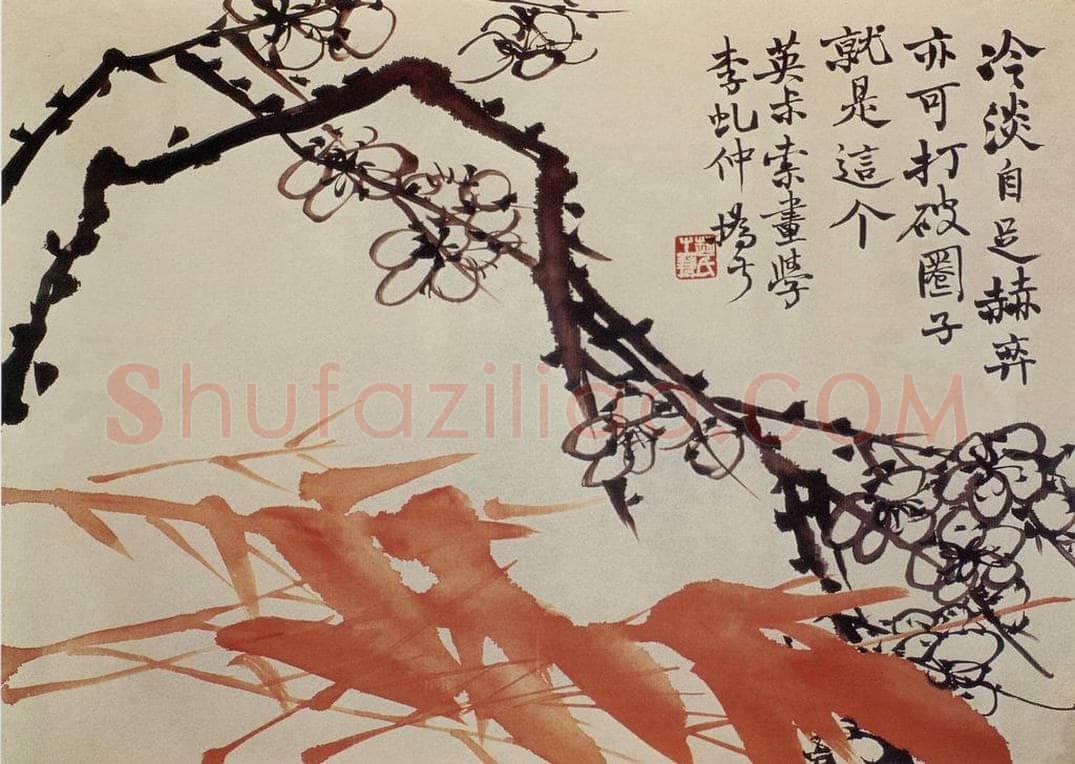 冷淡自足赫弈
亦可打破圈子
就是這个
英尗索畫學
李虬仲 撝尗
Shufaziliao.COM